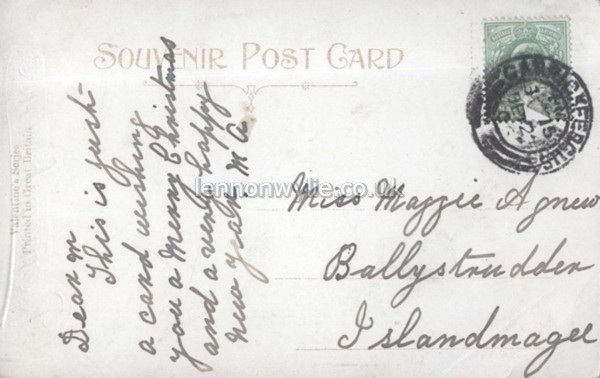 SOUVENIR POST CARD
Valentine's Series
Printed in Great Britain
Dear M
This is just
a card wishing
you a Merry Christmas
and a very happy
new year. M A.
Miss Maggie Agnew
Ballystrudder
Islandmagee
CARRICKFERGUS
lennonwylie.co.uk